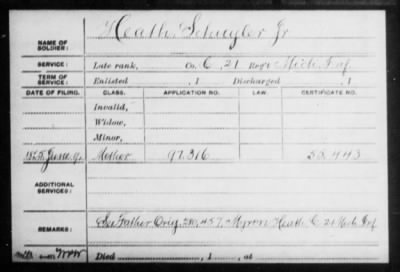 NAME OF SOLDIER: Heath, Schuyler Jr
SERVICE: Late rank, Co. C, 21 Reg't Mich. Inf
TERM OF SERVICE: Enlisted , 1 Discharged , 1
DATE OF FILING. CLASS. APPLICATION NO. LAW. CERTIFICATE NO.
Invalid,
Widow,
Minor,
June 9, Mother 97.316 52443
ADDITIONAL SERVICES:
REMARKS: See Father Orig. 280,457, Myron Heath C 21 Mich Inf
Died , 1 , at